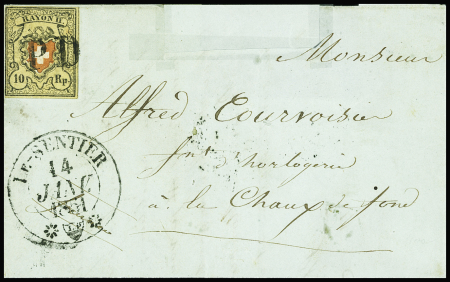 RAYON II.
P D
10 Rp.
Monsieur
Alfred Courvoisier
fnt horlogerie
à la Chaux de fond
LE SENTIER
14